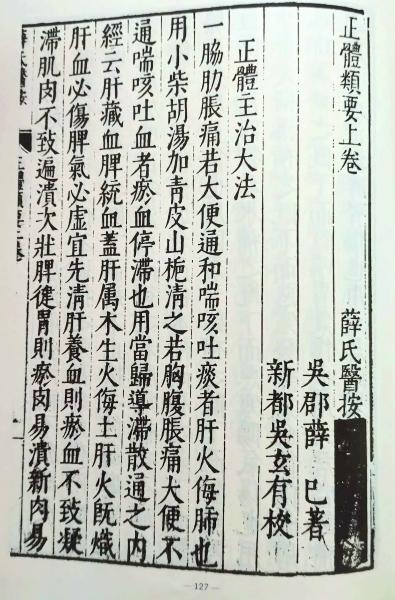 正體類要上卷 薛氏醫按
吳郡薛 已著
新都吳玄有校
正體主治大法
一脇肋脹痛若大便通和喘咳吐痰者肝火侮肺也
用小柴胡湯加青皮山梔清之若胸腹脹痛大便不
通喘咳吐血者瘀血停滯也用當歸導滯散通之内
經云肝藏血脾統血蓋肝属木生火侮土肝火旣熾
肝血必傷脾氣必虛宜先清肝養血則瘀血不致凝
滯肌肉不致遍潰次壯脾健胃則瘀肉易潰新肉易
薛氏醫按 正體類要上卷 一
— 127 —